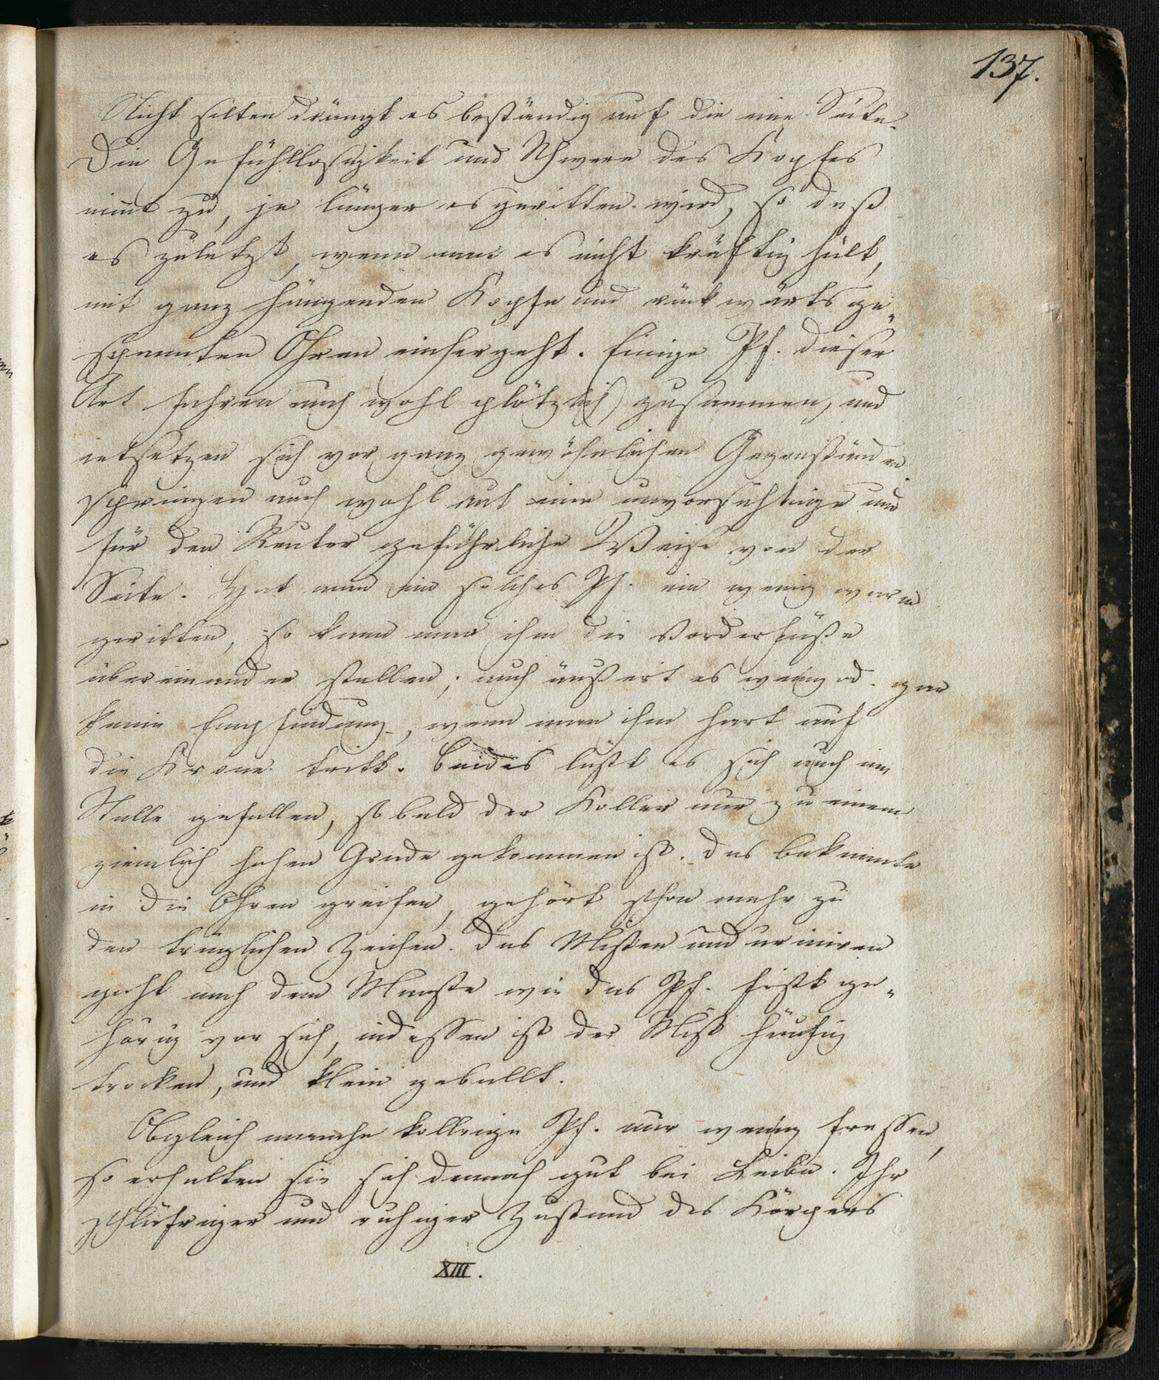 137.
Nicht selten drängt es beständig auf die eine Seite.
Die Gefühllosigkeit und Schwere des Kopfes
nimt zu, je länger es geritten wird, so daß
es zuletzt, wenn man es nicht kräftig hält,
mit ganz hängenden Kopfe und rückwärts ge„
spannten Ohren einhergeht. Einige Pf. dieser
Art fahren auch wohl plötzlich zusammen, und
entsetzen sich vor ganz gewöhnlichen Gegenständen
springen auch wohl auf eine unvorsichtige und
für den Reuter gefährliche Weise von der
Seite. Hat man ein solches Pf. ein wenig warm
geritten, so kann man ihm die Vorderfüße
übereinander stellen; auch äußert es wenig od. gar
keine Empfindung, wenn man ihm hart auf
die Krone tritt. Beides läßt es sich auch im
Stalle gefallen, sobald der Koller nur zu einem
ziemlich hohen Grade gekommen ist. Das bekannte
in die Ohren greifen, gehört schon mehr zu
den trüglichen Zeichen. Das Misten und uriniren
geht nach dem Maaße wie das Pf. frißt ge„
hörig vor sich, indessen ist der Mist häufig
trocken, und klein geballt.
Obgleich manche kollrige Pf. nur wenig fressen,
so erhalten sie sich dennoch gut bei Leibe. Ihr
schläfriger und ruhiger Zustand des Körpers
XIII.